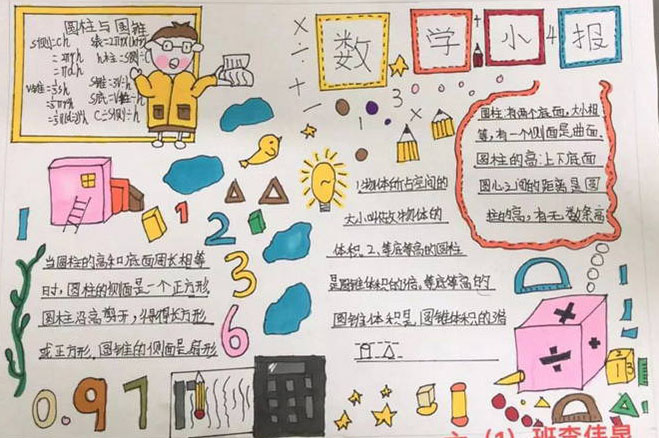 圆柱与圆锥
S侧=ch
=πdh
数学小报
圆柱:有两个底面,大小相
等,有一个侧面是曲面.
圆柱的高:上下底面
圆心之间的距离是圆
柱的高,有无数条高
1.物体所占空间的
大小叫做物体的
体积.2、等底等高的圆柱
是圆锥体积的3倍,等底等高的
圆锥体积是圆锥体积的
当圆柱的高和底面周长相等
时,圆柱的侧面是一个正方形
圆柱沿高剪开,得到长方形
或正方形.圆锥的侧面是扇形
1
1
2
3
6
0.97
3
4
2
1 3
(1)班李佳